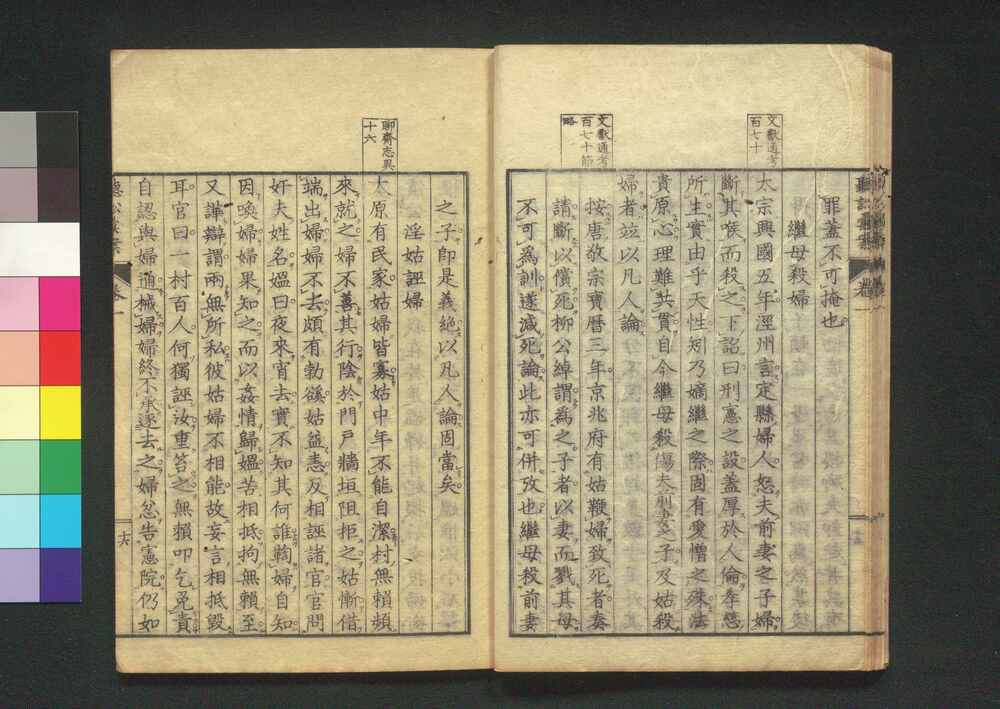 文獻通考
百七十
罪蓋不可掩也
繼母殺婦
太宗興國五年涇州言定縣婦人怒夫前妻之子婦
斷其喉而殺之下詔曰刑憲之設蓋厚於人倫孝慈
所生實由乎天性矧乃嫡繼之際固有愛憎之殊法
貴原心理難共貫自今繼母殺傷夫前妻之子及姑殺
婦者竝以凡人論
文獻通考
百七十節
略
按唐敬宗寶曆三年京兆府有姑鞭婦致死者奏
請斷以償死柳公綽謂為之子者以妻而戮其母
不可為訓遂減死論此亦可併攷也繼母殺前妻
之子卽是義絶以凡人論固當矣
淫姑誣婦
聊齋志異
十六
太原有民家姑婦皆寡姑中年不能自潔村無賴頻
來就之婦不善其行陰於門戸牆垣阻拒之姑慚借
端出婦婦不去頗有勃谿姑益恚反相誣諸官官問
奸夫姓名媼曰夜來宵去實不知其何誰鞫婦自知
因喚婦婦果知之而以姦情歸媼苦相抵拘無賴至
又譁辯謂兩無所私彼姑婦不相能故妄言相抵毀
耳官曰一村百人何獨誣汝重笞之無賴叩乞免責
自認與婦通械婦婦終不承逐去之婦忿告憲院仍如
十六